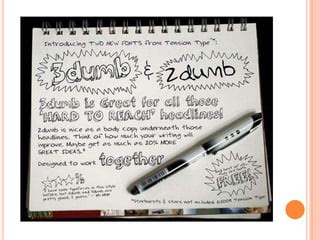 Introducing TWO NEW FONTS from Tension Type™:
3dumb & 2dumb
3dumb is Great for all those
"HARD TO REACH" headlines!
2dumb is nice as a body copy underneath those
headlines. Think of how much your writing will
improve. Maybe get as much as 20% MORE
GREAT IDEAS.*
Designed to work together
FREE!
*Starbursts & stars not included ©2008 Tension Type